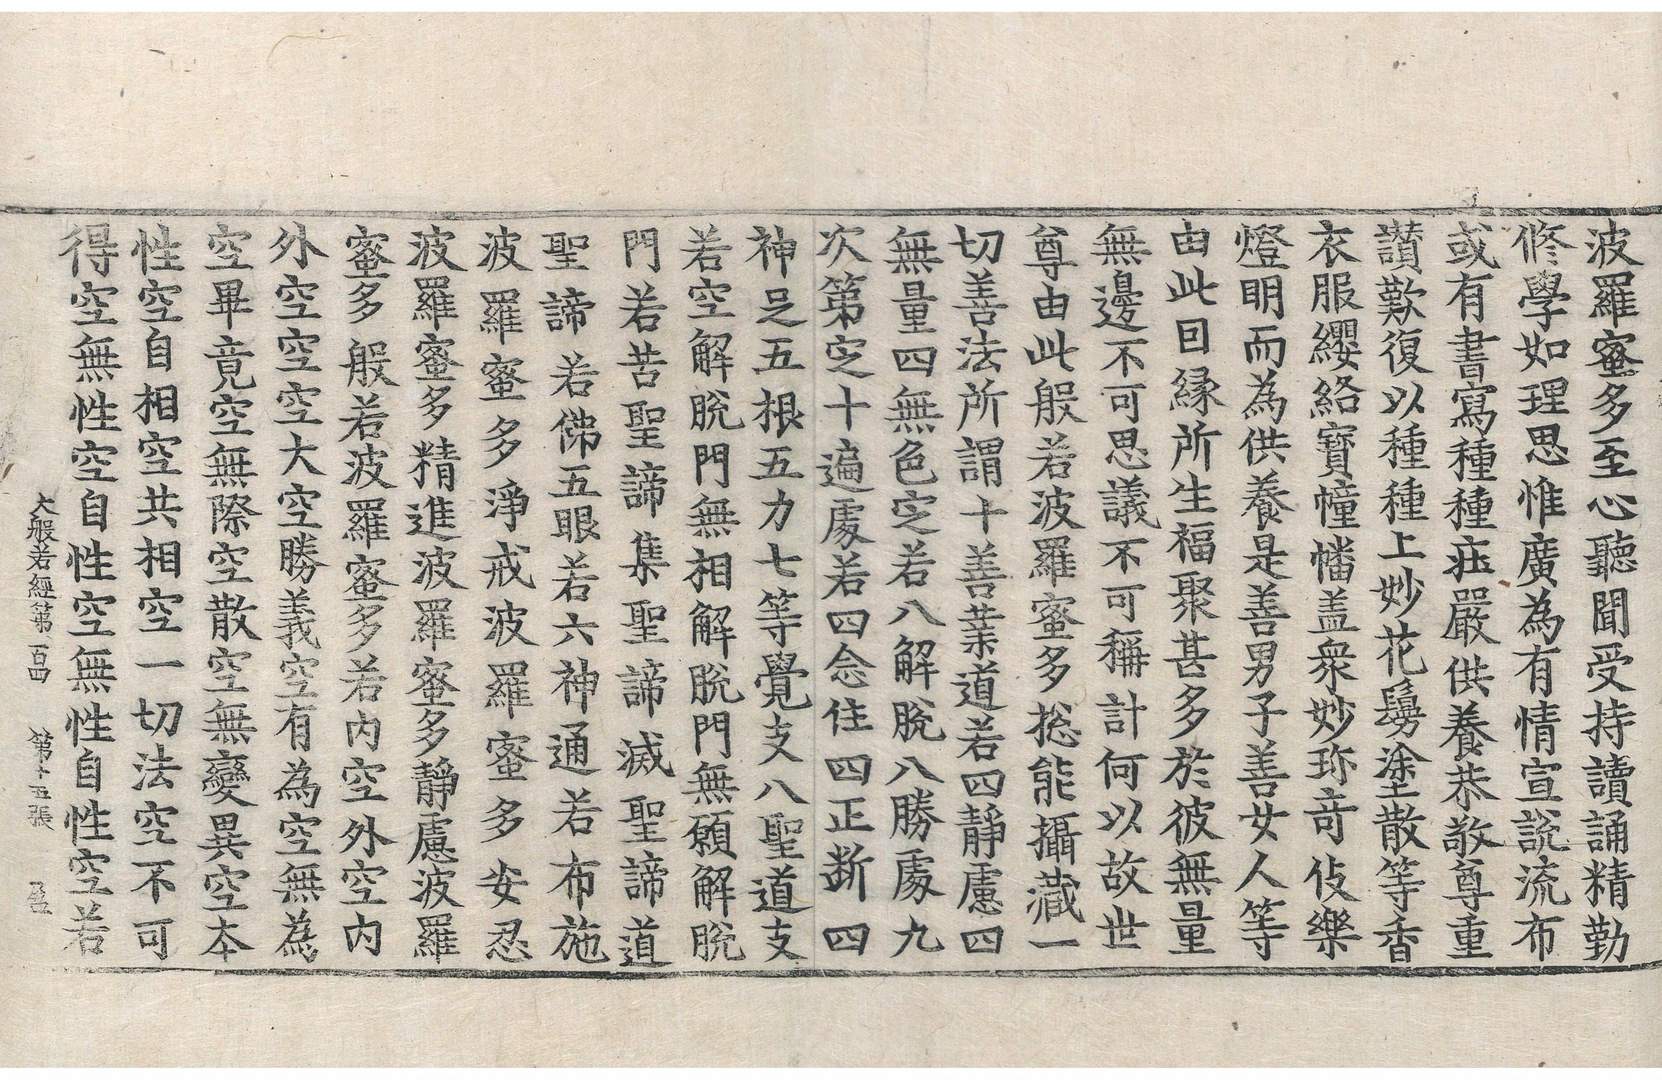 波羅蜜多至心聽聞受持讀誦精勤
修學如理思惟廣為有情宣說流布
或有書寫種種莊嚴供養恭敬尊重
讃歎復以種種上妙花鬘塗散等香
衣服纓絡寳幢幡盖衆妙珎竒伎樂
燈明而為供養是善男子善女人等
由此因縁所生福聚甚多於彼無量
無邊不可思議不可稱計何以故世
尊由此般若波羅蜜多捴能攝藏一
切善法所謂十善業道若四靜慮四
無量四無色定若八解脫八勝處九
次第定十遍處若四念住四正断四
神足五根五力七等覺支八聖道支
若空解脫門無相解脫門無願解脫
門若苦聖諦集聖諦滅聖諦道
聖諦若佛五眼若六神通若布施
波羅蜜多淨戒波羅蜜多安忍
波羅蜜多精進波羅蜜多靜慮波羅
蜜多般若波羅蜜多若内空外空内
外空空空大空勝義空有為空無為
空畢竟空無際空散空無變異空本
性空自相空共相空一切法空不可
得空無性空自性空無性自性空若
大般若經第百四 第十五張 盈